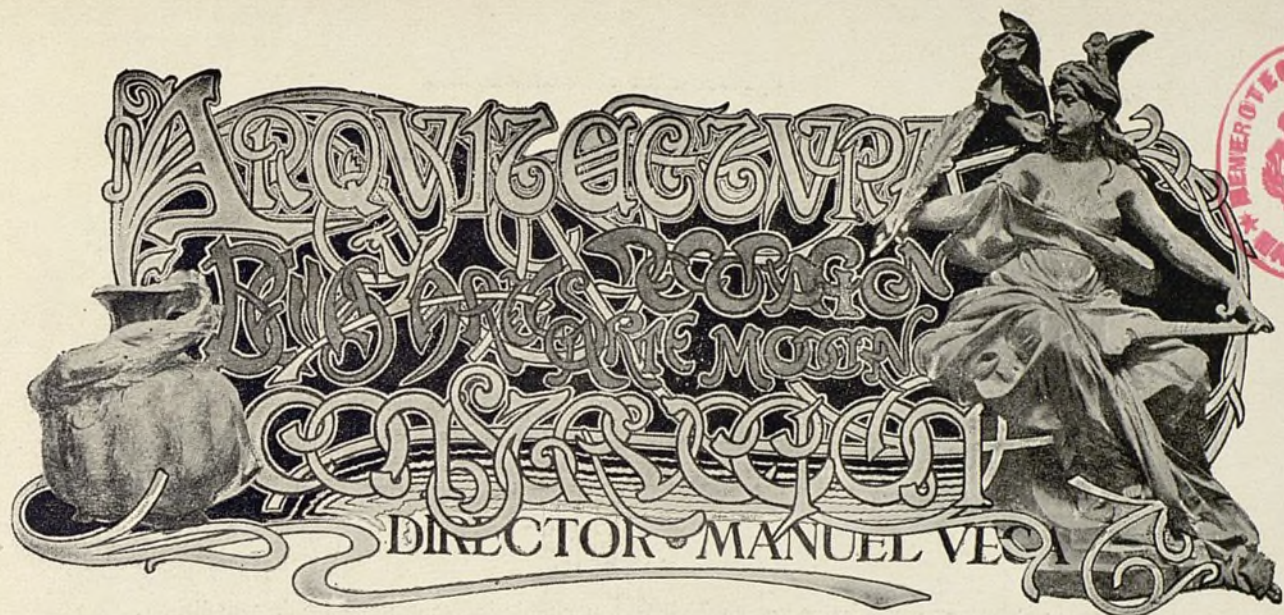 ARQVITECTVRA
BELLAS ARTES DECORACION
ARTE MODERNO
CONSTRUCCIÓN
DIRECTOR • MANUEL VEGA
HEMEROTEC